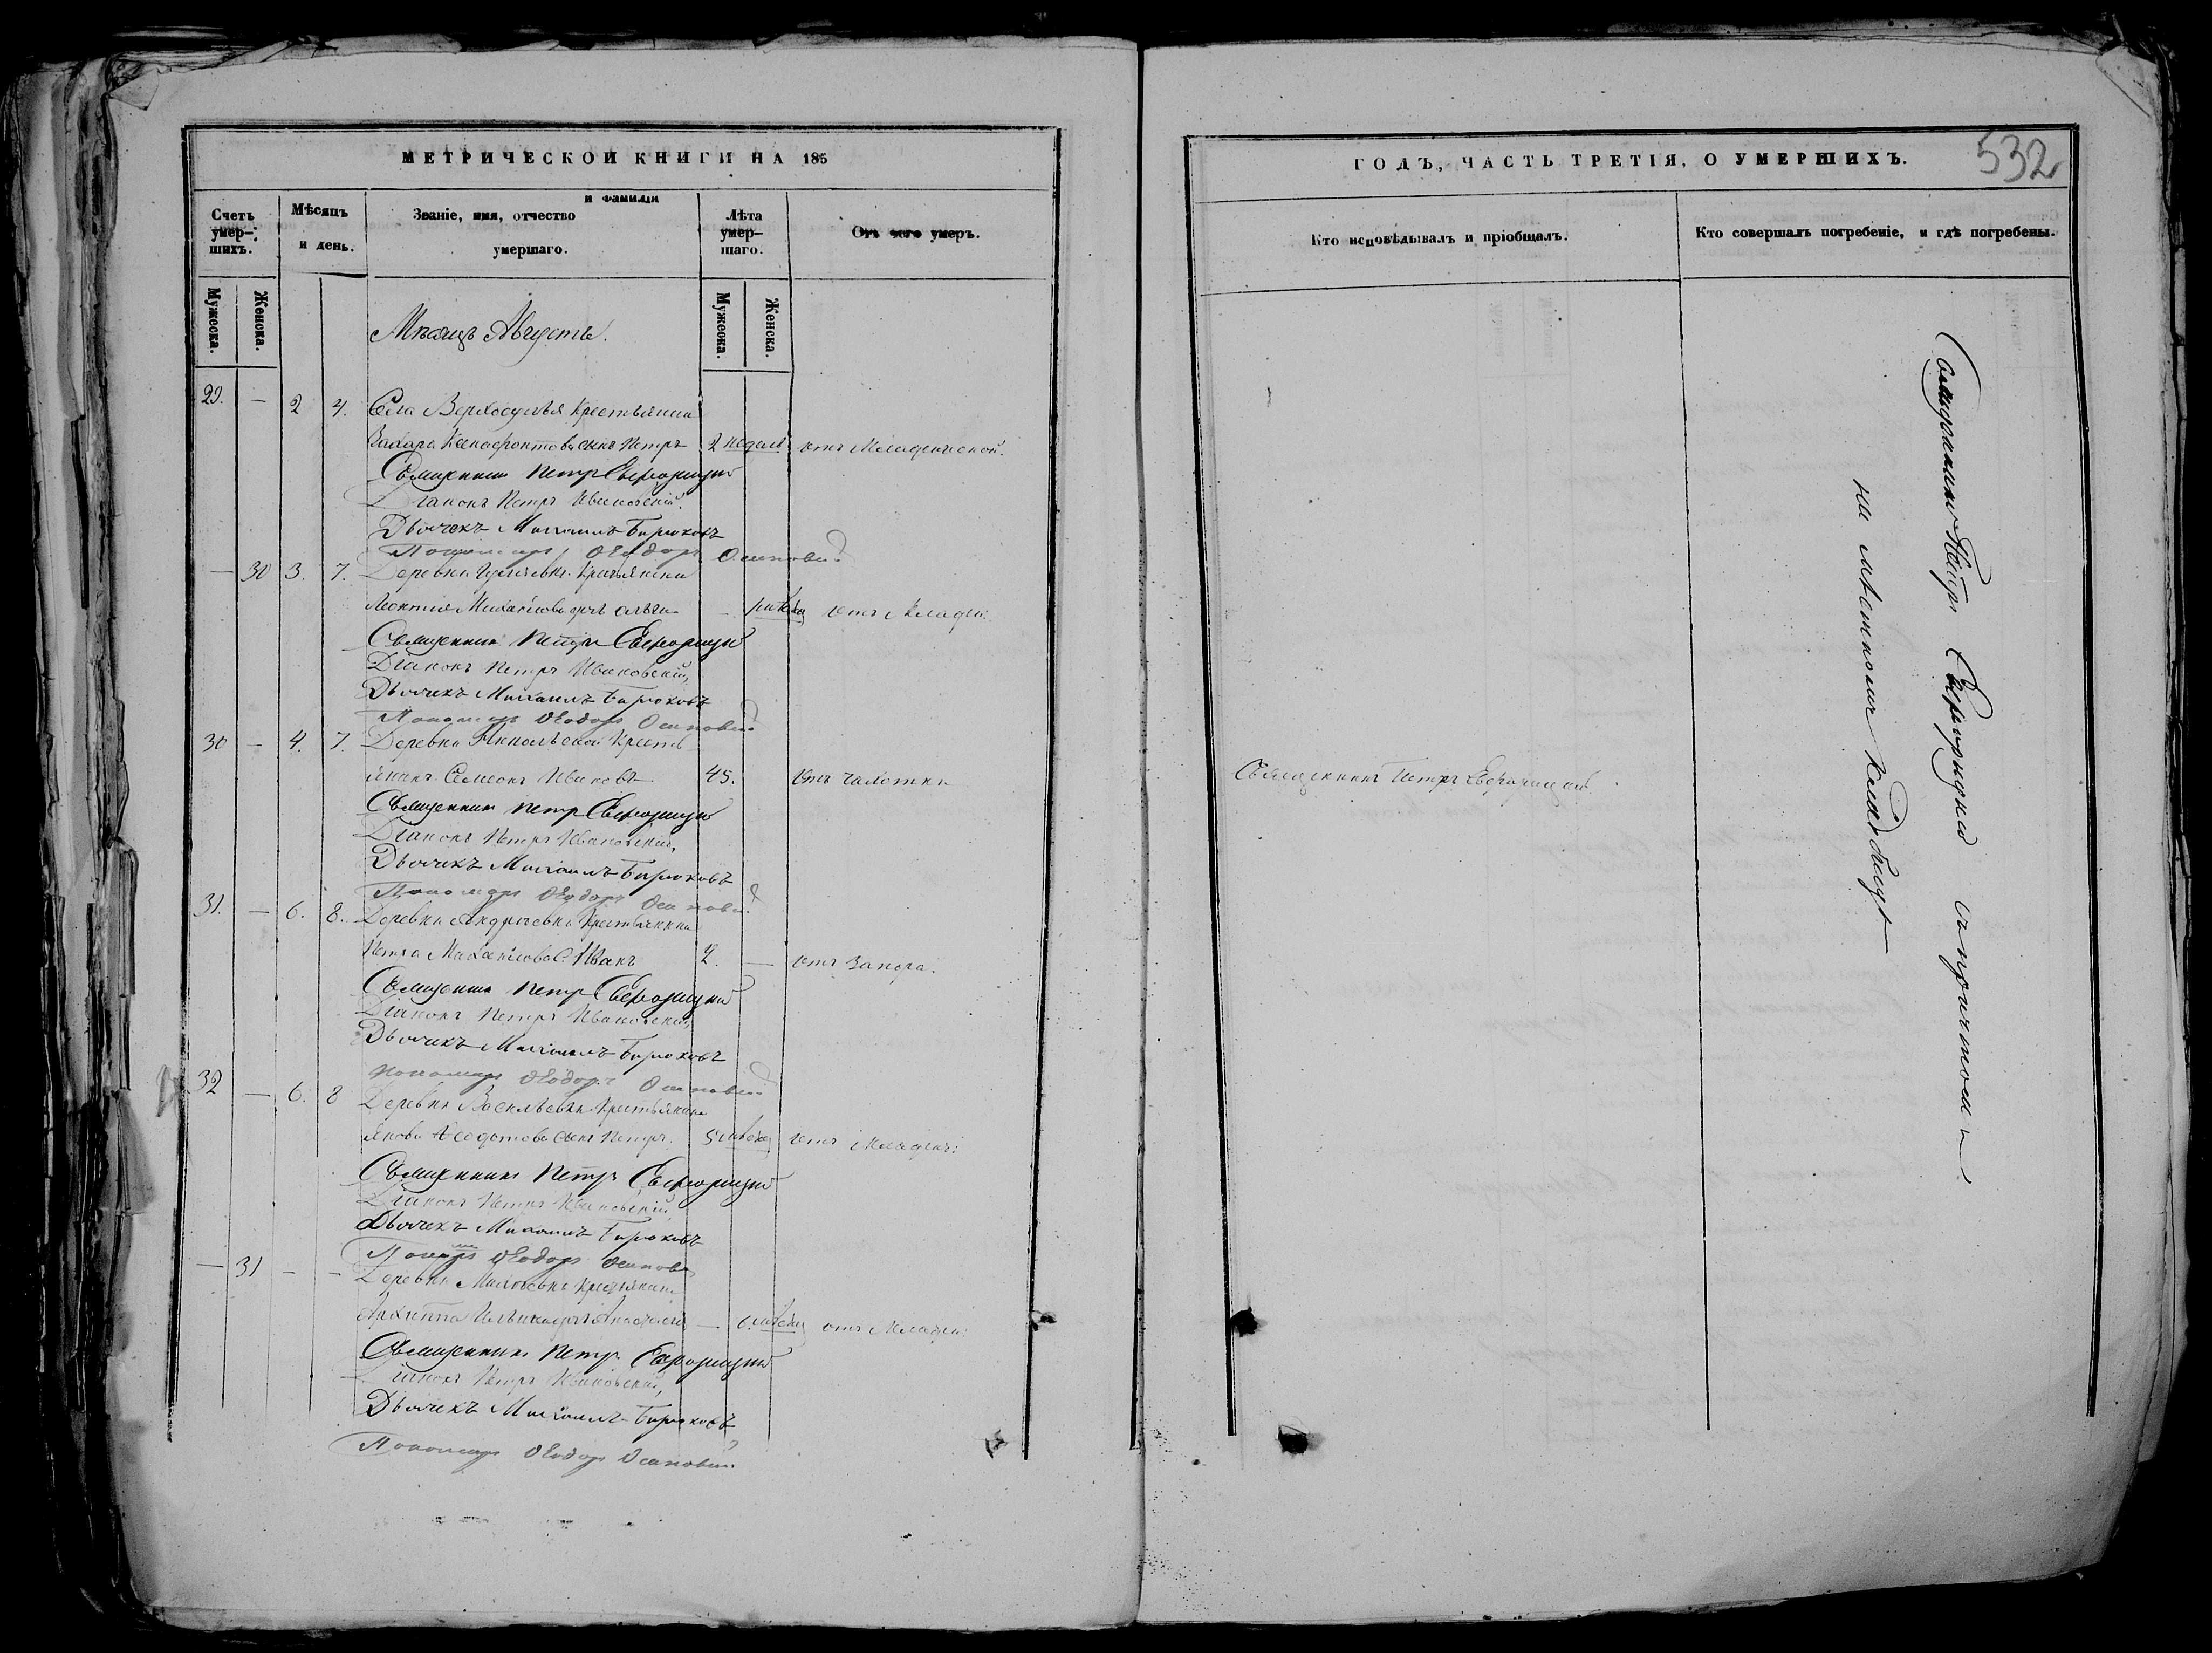 МЕТРИЧЕСКОЙ КНИГИ НА 185
Счетъ умер-шихъ.
Мѣсяцъ и день.
Званіе, имя, отчество и фамилія умершаго.
Лѣта умер-шаго.
Отъ чего умеръ.
Мужеска.
Женска.
Мужеска.
Женска.
Мѣсяцъ Августъ.
29. — 2 4. Села Верхосулья Крестьянина
Захара Ксенофонтова сынъ Петръ 2 недѣль отъ Младенческой.
Священникъ Петръ
Діаконъ Петръ Ивановскій
Дьячекъ Михаилъ Бирюковъ
Пономарь Ѳеодоръ
— 30 3. 7. Деревни Крестьянина
Леонтія Михайлова дочь отъ Младен:
Священникъ Петръ
Діаконъ Петръ Ивановскій
Дьячекъ Михаилъ Бирюковъ
Пономарь Ѳеодоръ
30 — 4. 7. Деревни Никольской Кресть
янинъ Семеонъ Ивановъ 45. отъ чахотки
Священникъ Петръ
Діаконъ Петръ Ивановскій
Дьячекъ Михаилъ Бирюковъ
Пономарь Ѳеодоръ
31. — 6. 8. Деревни Андреевки Крестьянина
Петра Михайлова с. Иванъ 2. — отъ запора.
Священникъ Петръ
Діаконъ Петръ Ивановскій
Дьячекъ Михаилъ Бирюковъ
Пономарь Ѳеодоръ
32 — 6. 8 Деревни Васильевки Крестьянина
Якова Ѳеодотова сынъ Петръ. 5 отъ Младен:
Священникъ Петръ
Діаконъ Петръ Ивановскій
Дьячекъ Михаилъ Бирюковъ
Ѳеодоръ
— 31 - - Деревни Крестьянина
Архиппа отъ Младен:
Священникъ Петръ
Діаконъ Петръ Ивановскій
Дьячекъ Михаилъ Бирюковъ
Пономарь Ѳеодоръ
ГОДЪ, ЧАСТЬ ТРЕТІЯ, О УМЕРШИХЪ.
532
Кто исповѣдывалъ и пріобщалъ.
Кто совершалъ погребеніе, и гдѣ погребены.
Священникъ Петръ
Священникъ Петръ съ причтомъ
на мѣстномъ кладбищѣ